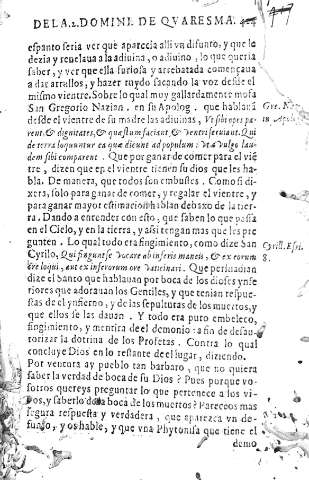 DE LA 2. DOMINI. DE QVARESMA.
espanto seria ver que aparecia alli vn difunto, y que le
dezia y reuelaua a la adiuina, o adiuino, lo que queria
saber, y ver que ella furiosa y arrebatada començaua
a dar arrullos, y hazer ruydo sacando la voz desde el
mismo vientre. Sobre lo qual muy gallardamente mofa
San Gregorio Nazian. en su Apolog. que hablauā
desde el vientre de su madre las adiuinas,
rent, & dignitates, & quæstum faciant, & ventri seruiant. Qui
de terra loquuntur ea quæ dicunt ad populum: vt à vulgo lau-
dem sibi comparent. Que por ganar de comer para el viē
tre, dizen que en el vientre tienen su dios que les ha-
bla. De manera, que todos son embustes. Como si di-
xera, solo para ganar de comer, y regalar el vientre, y
para ganar mayor estimacion hablan debaxo de la tier-
ra. Dando a entender con esto, que saben lo que passa
en el Cielo, y en la tierra, y assi tengan mas que les pre
gunten. Lo qual todo era fingimiento, como dize San
Cyrilo, Qui finguntse vocare ab inferis maneis, & ex eorum
ore loqui, aut ex inferorum ore vaticinari. Que persuadian
dize el Santo que hablauan por boca de los dioses ynfe
riores que adorauan los Gentiles, y que tenian respue-
stas del ynfierno, y de las sepulturas de los muertos, y
que ellos se las dauan. Y todo era puro embeleco,
fingimiento, y mentira de el demonio: a fin de desau-
torizar la dotrina de los Profetas. Contra lo qual
concluye Dios en lo restante de el lugar, diziendo.
Por ventura ay pueblo tan barbaro, que no quiera
saber la verdad de boca de su Dios? Pues porque vo-
sotros quereys preguntar lo que pertenece a los vi-
uos, y saberlo de la boca de los muertos? Pareceos mas
segura respuesta y verdadera, que aparezca vn de-
funto, y os hable, y que vna Phytonisa que tiene el
demo
Gre. Na
in Apol
Cyrill. Esai.
8.